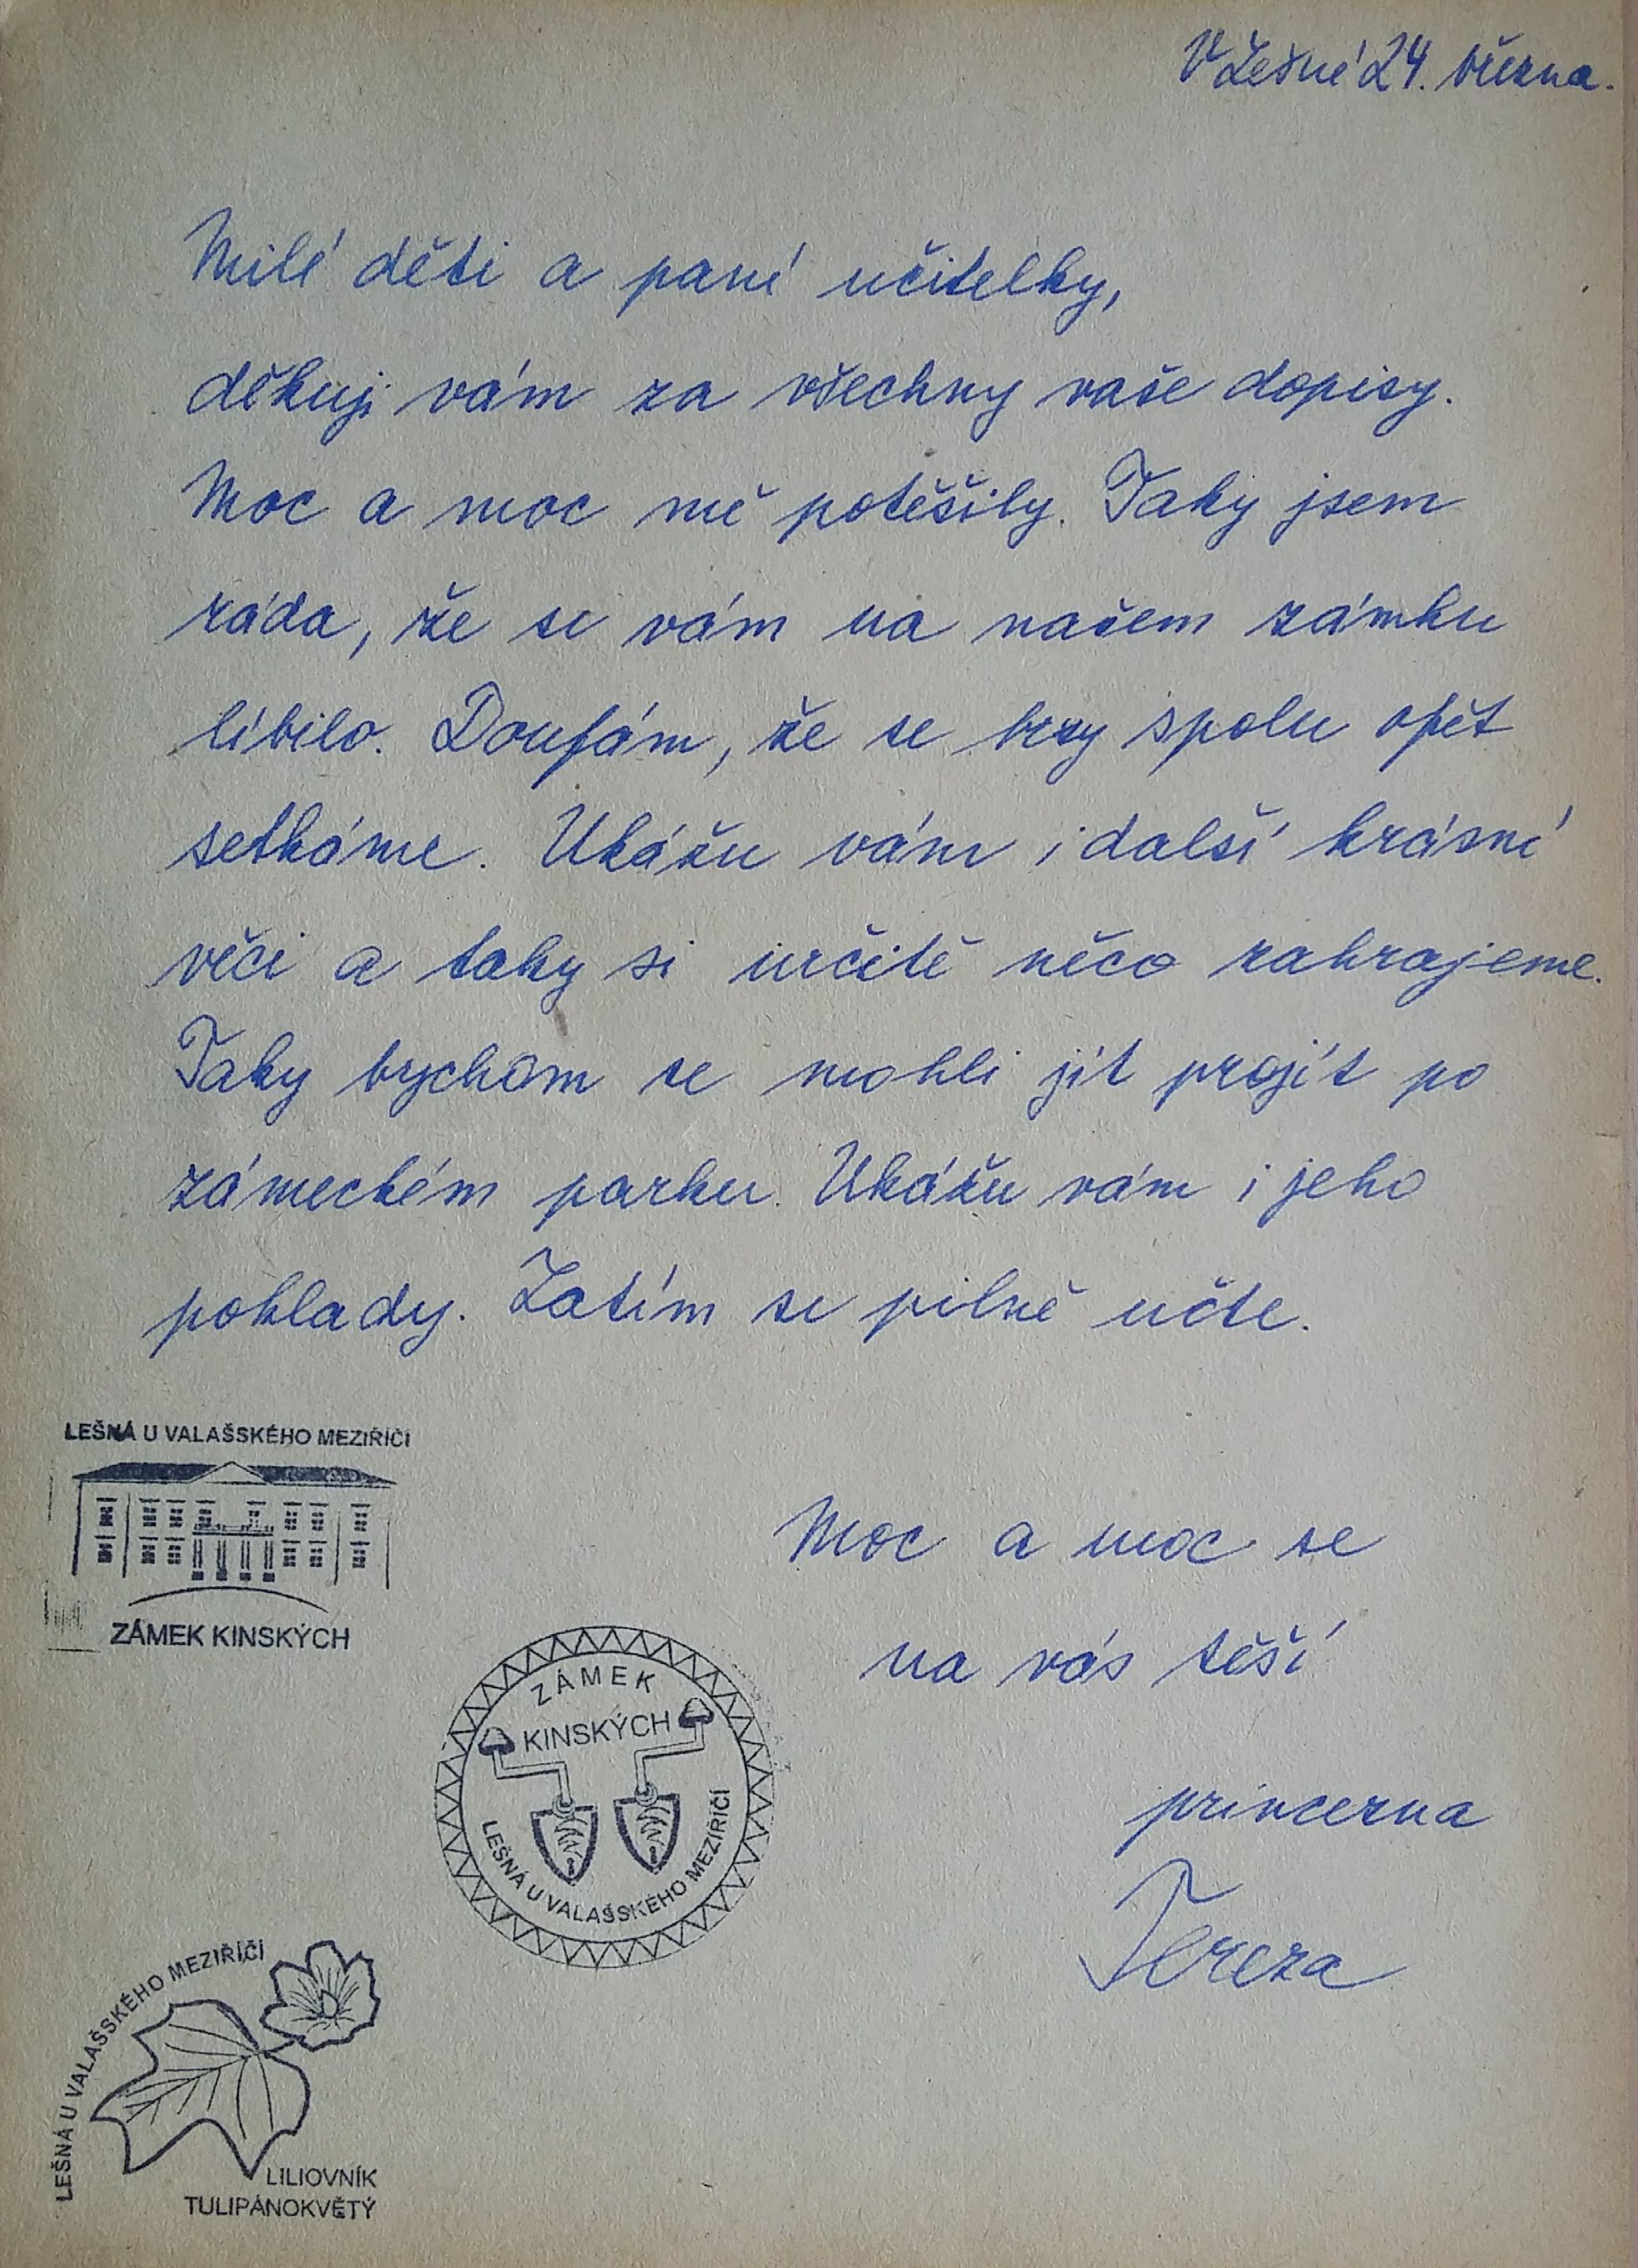 V Lešné 24. března.
Milé děti a paní učitelky,
děkuji vám za všechny vaše dopisy.
Moc a moc mě potěšily. Taky jsem
ráda, že se vám na našem zámku
líbilo. Doufám, že se brzy spolu opět
setkáme. Ukážu vám i další krásné
věci a taky si určitě něco zahrajeme.
Taky bychom se mohli jít projít po
zámeckém parku. Ukážu vám i jeho
poklady. Zatím se pilně učte.
Moc a moc se
na vás těší
princezna
Tereza
LEŠNÁ U VALAŠSKÉHO MEZIŘÍČÍ
ZÁMEK KINSKÝCH
ZÁMEK
KINSKÝCH
LEŠNÁ U VALAŠSKÉHO MEZIŘÍČÍ
LEŠNÁ U VALAŠSKÉHO MEZIŘÍČÍ
LILIOVNÍK
TULIPÁNOKVĚTÝ